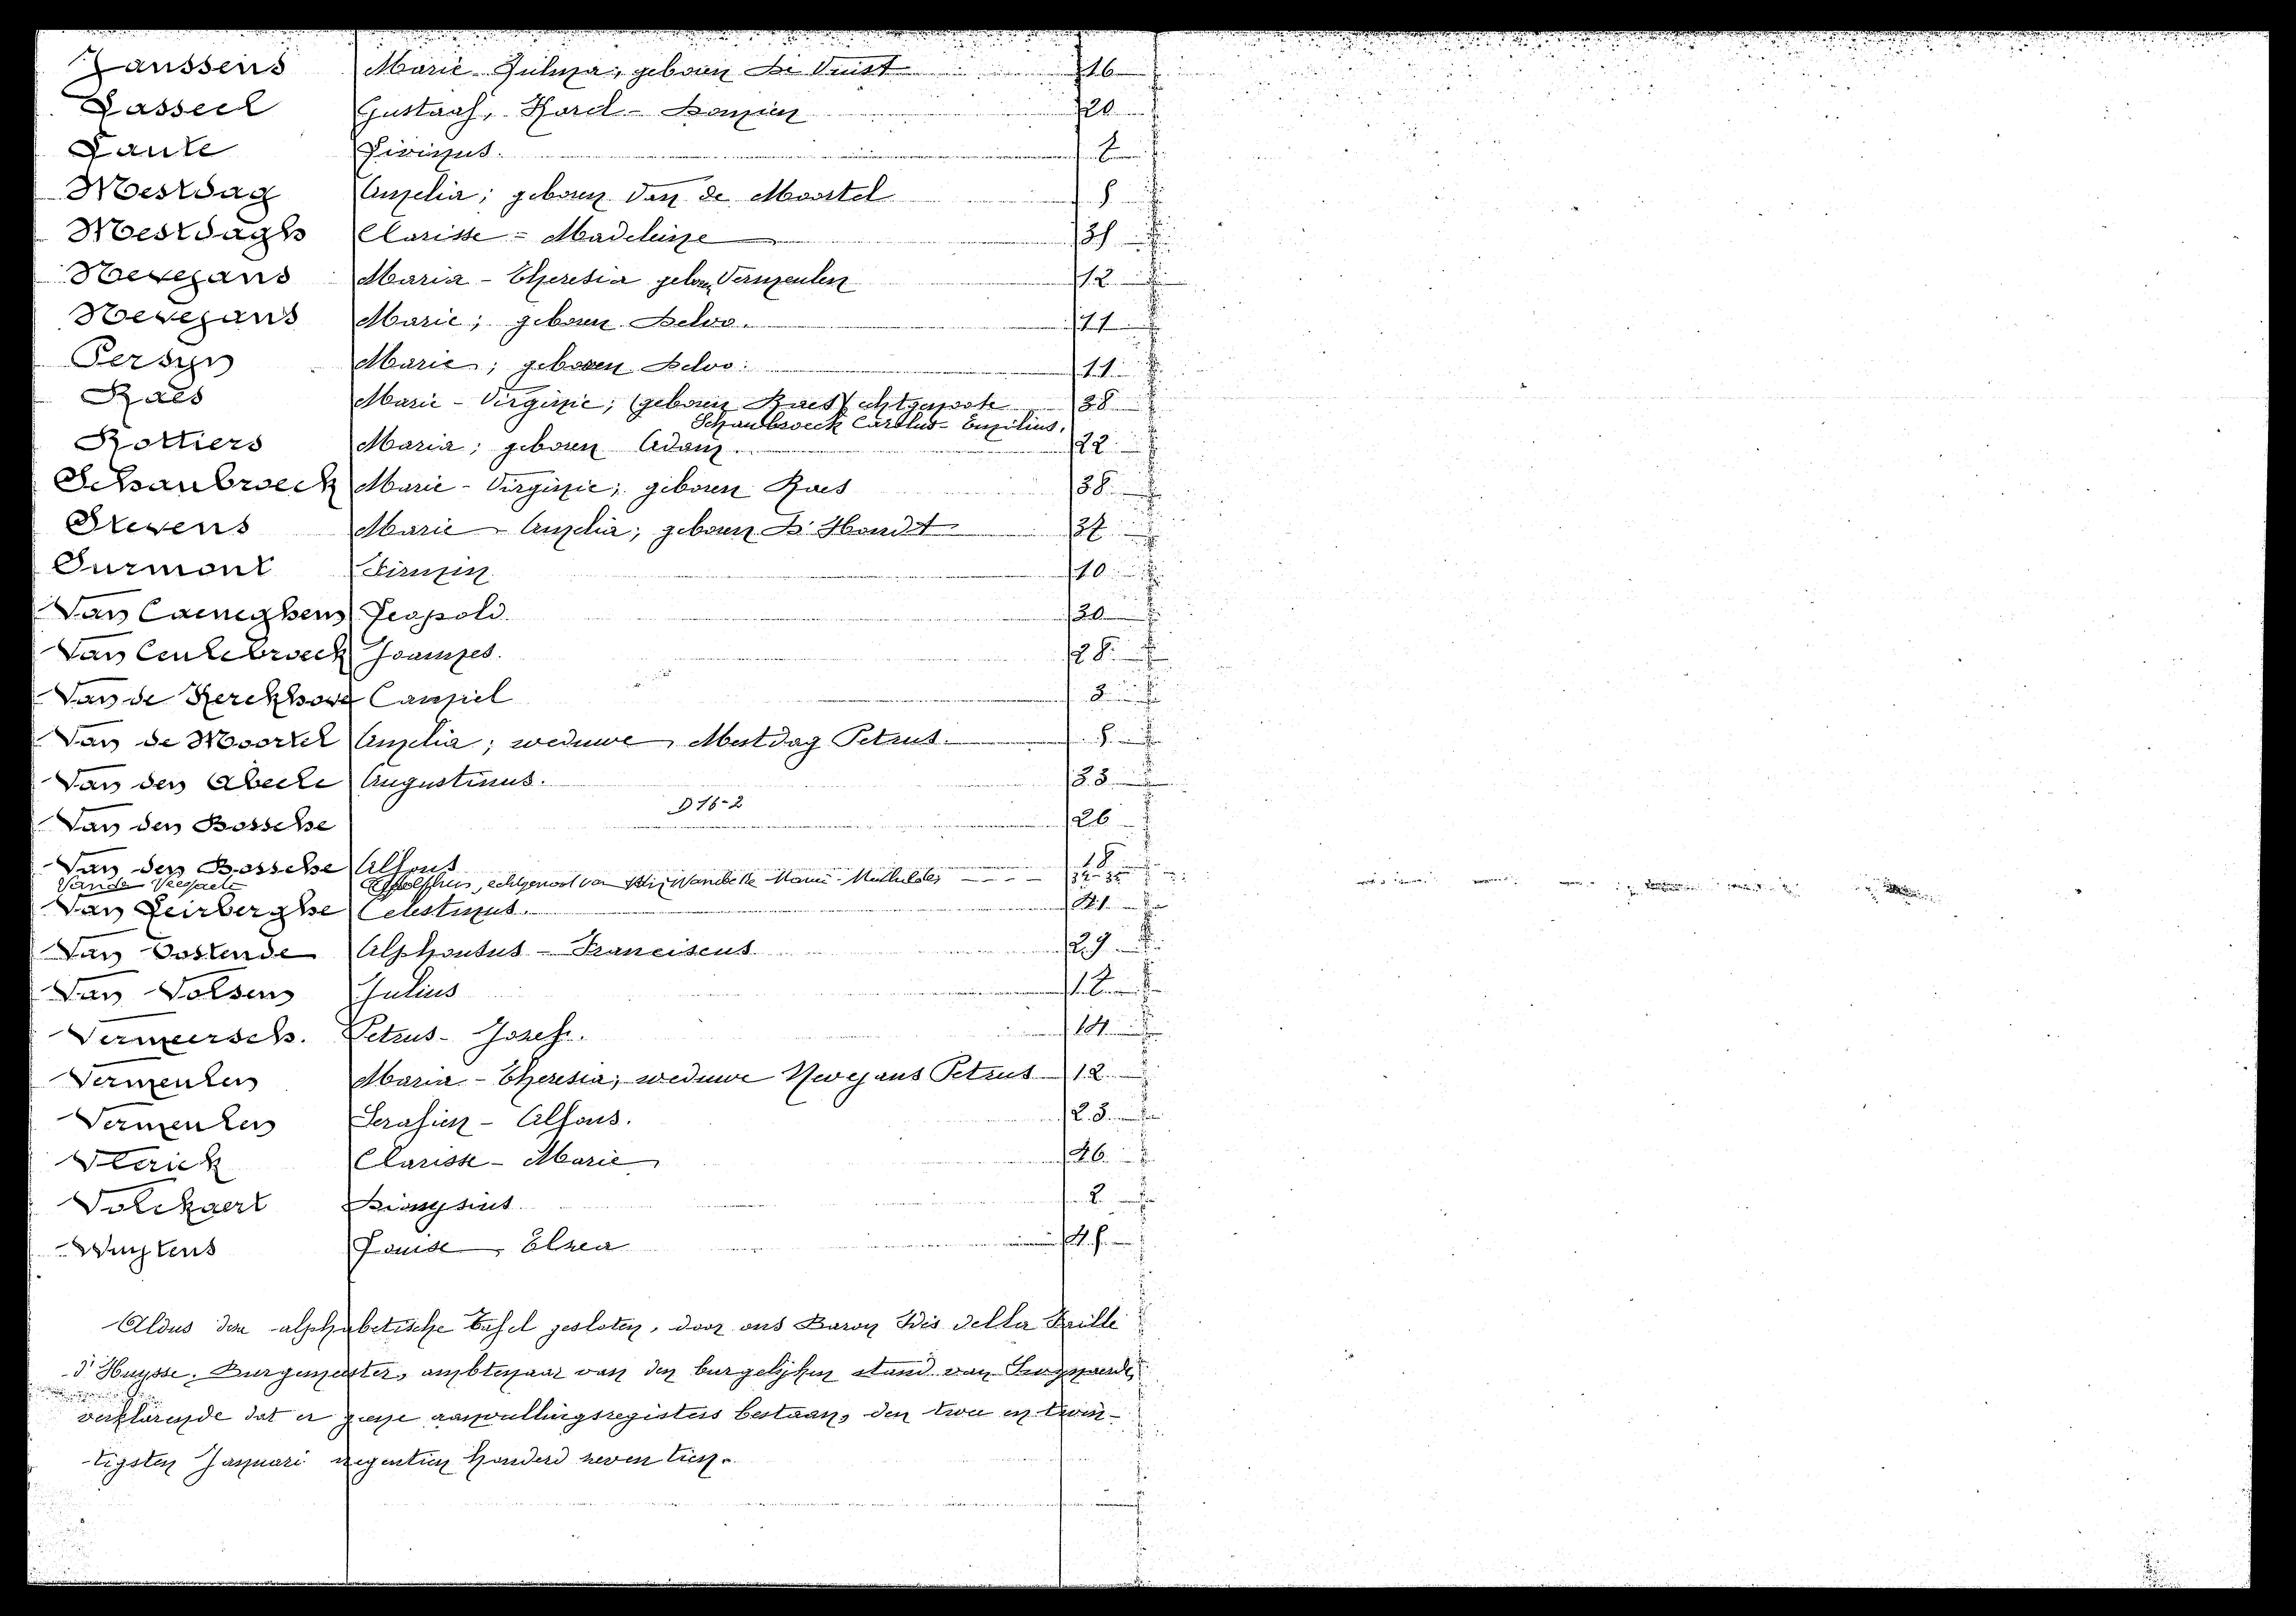 Janssens Marie-Zulma, geboren De Vuist 16
Lasseel Gustaaf, Karel-Damien 20
Laute Livinus. 7
Mestdag Amelia; geboren Van de Moortel 5
Mestdagh Clarisse-Madeleine 35
Nevejans Maria-Theresia geboren Vermeulen 12
Nevejans Marie; geboren Deloo. 11
Persyn Marie; geboren Deloo. 11
Raes Marie-Virginie; (geboren Raes) echtgenoote 38
Schaubroeck Carolus-Emilius.
Rottiers Maria; geboren Adam. 22
Schaubroeck Marie-Virginie; geboren Raes 38
Stevens Marie-Amelia; geboren D'Hondt 37
Surmont Firmin 10
Van Caeneghem Leopold. 30
Van Ceulebroeck Joannes. 28
Van de Kerckhove Camiel 3
Van de Moortel Amelia; weduwe Mestdag Petrus. 5
Van den Abeele Augustinus. 33
D 16-2
Van den Bossche 26
Van den Bossche Alfons 18
Vande Veegaete echtgenoot van Marie-Mathilde
Van Leirberghe Celestinus. 41
Van Oostende Alphonsus-Franciscus 29
Van Volsem Julius 17
Vermeersch. Petrus-Jozef. 14
Vermeulen Maria-Theresia; weduwe Nevejans Petrus 12
Vermeulen Serafien-Alfons. 23
Vlerick Clarisse-Marie 46
Volckaert Dionysius 2
Wuytens Louise, Elza 45
Aldus deze alphabetische tafel gesloten, door ons Baron Idés della Faille
d'Huysse, Burgemeester, ambtenaar van den burgelijken stand van
verklarende dat er geene aanvullingsregisters bestaan, den twee en twin-
tigsten Januari negentien honderd zeven tien.